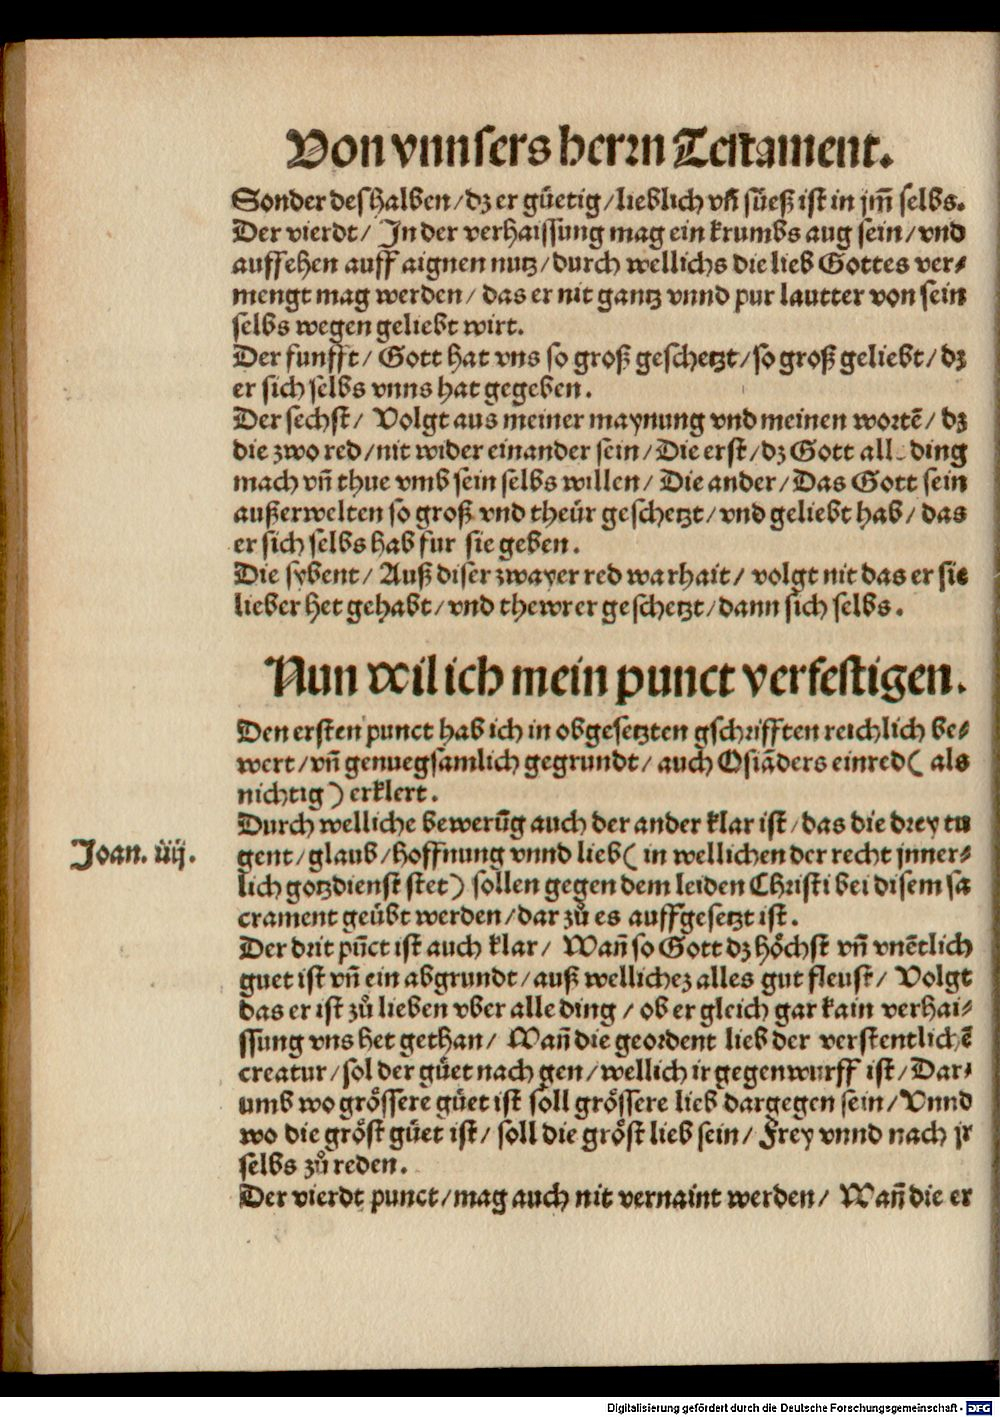 Von vnnsers herrn Testament.
Sonder deshalben/dz er güetig/lieblich vñ süeß ist in jm̃ selbs.
Der vierdt/ In der verhaissung mag ein krumbs aug sein/vnd
auffsehen auff aignen nutz/durch wellichs die lieb Gottes ver⸗
mengt mag werden/ das er nit gantz vnnd pur lautter von sein
selbs wegen geliebt wirt.
Der funfft/ Gott hat vns so groß geschetzt/so groß geliebt/dz
er sich selbs vnns hat gegeben.
Der sechst/ Volgt aus meiner maynung vnd meinen wortẽ/ dz
die zwo red/nit wider einander sein/Die erst/dz Gott all ding
mach vñ thue vmb sein selbs willen/ Die ander/Das Gott sein
außerwelten so groß vnd theür geschetzt/vnd geliebt hab/ das
er sich selbs hab fur sie geben.
Die sybent/ Auß diser zwayer red warhait/ volgt nit das er sie
lieber het gehabt/vnd thewrer geschetzt/dann sich selbs.
Nun wil ich mein punct verfestigen.
Den ersten punct hab ich in obgesetzten gschrifften reichlich be⸗
wert/vñ genuegsamlich gegrundt/auch Osiãders einred( als
nichtig) erklert.
Durch welliche bewerũg auch der ander klar ist/das die drey tu
Joan. iiij.
gent/glaub/hoffnung vnnd lieb( in wellichen der recht jnner⸗
lich gotzdienst stet) sollen gegen dem leiden Christi bei disem sa
crament geübt werden/dar zů es auffgesetzt ist.
Der drit pũct ist auch klar/ Wañ so Gott dz höchst vñ vnẽtlich
guet ist vñ ein abgrundt/auß wellichez alles gut fleust/ Volgt
das er ist zů lieben vber alle ding/ ob er gleich gar kain verhai⸗
ssung vns het gethan/ Wañ die geordent lieb der verstentlichẽ
creatur/sol der güet nach gen/wellich ir gegenwurff ist/Dar⸗
umb wo grössere güet ist soll grössere lieb dargegen sein/Vnnd
wo die gröst güet ist/ soll die gröst lieb sein/ Frey vnnd nach jr
selbs zů reden.
Der vierdt punct/mag auch nit vernaint werden/ Wañ die er
Digitalisierung gefördert durch die Deutsche Forschungsgemeinschaft - DFG